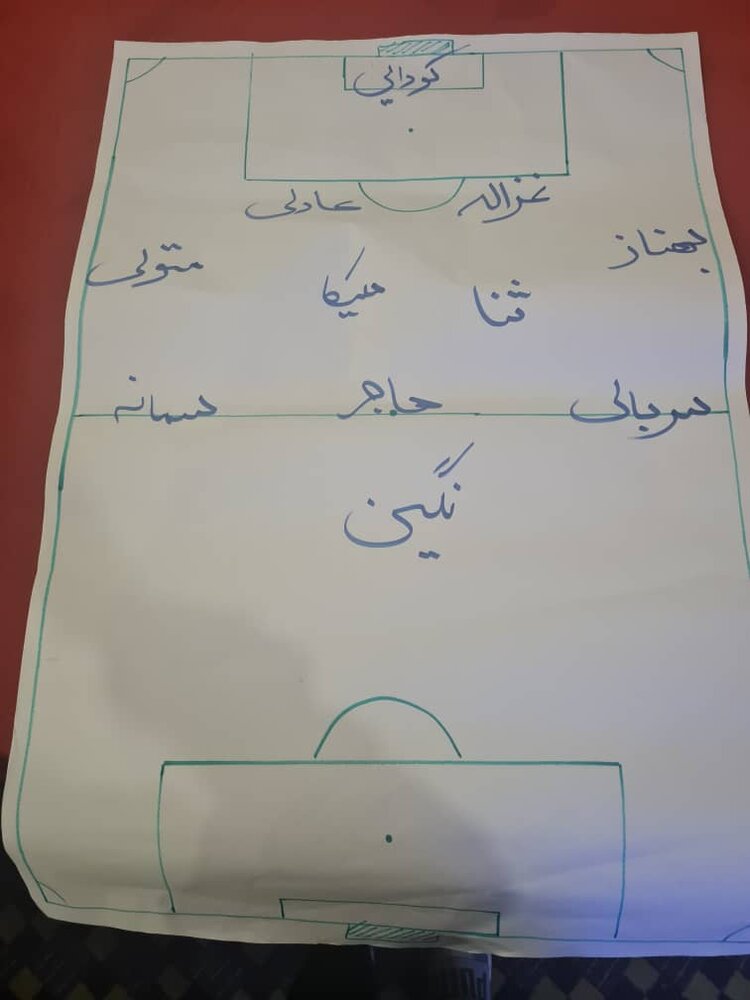 کودالي
غزاله عادلی
بهناز متولی
ثنا میکا
سربالی حاجر سمانه
نگین